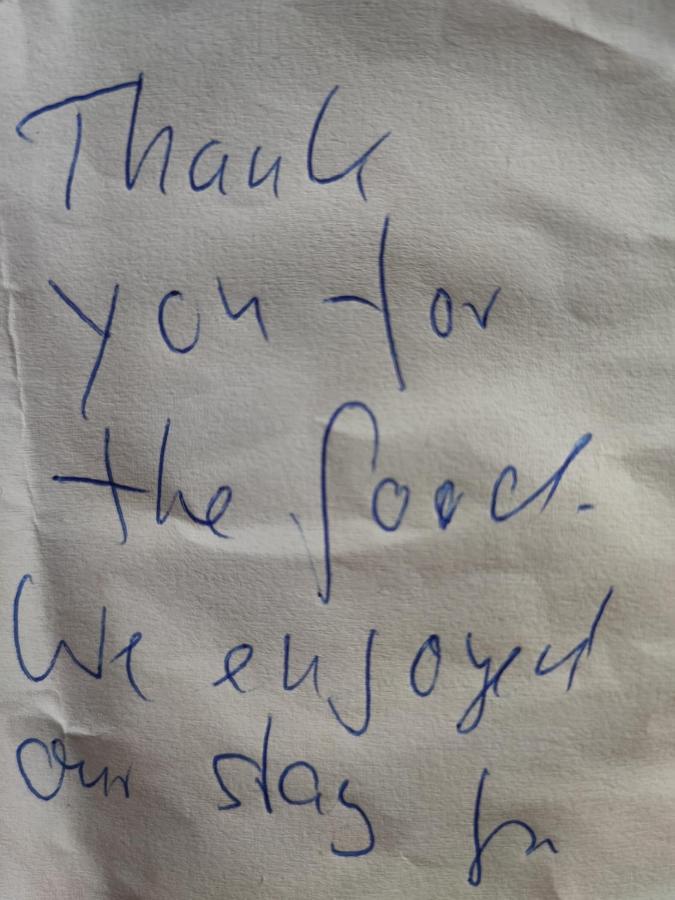 Thank
you for
the food.
We enjoyed
our stay